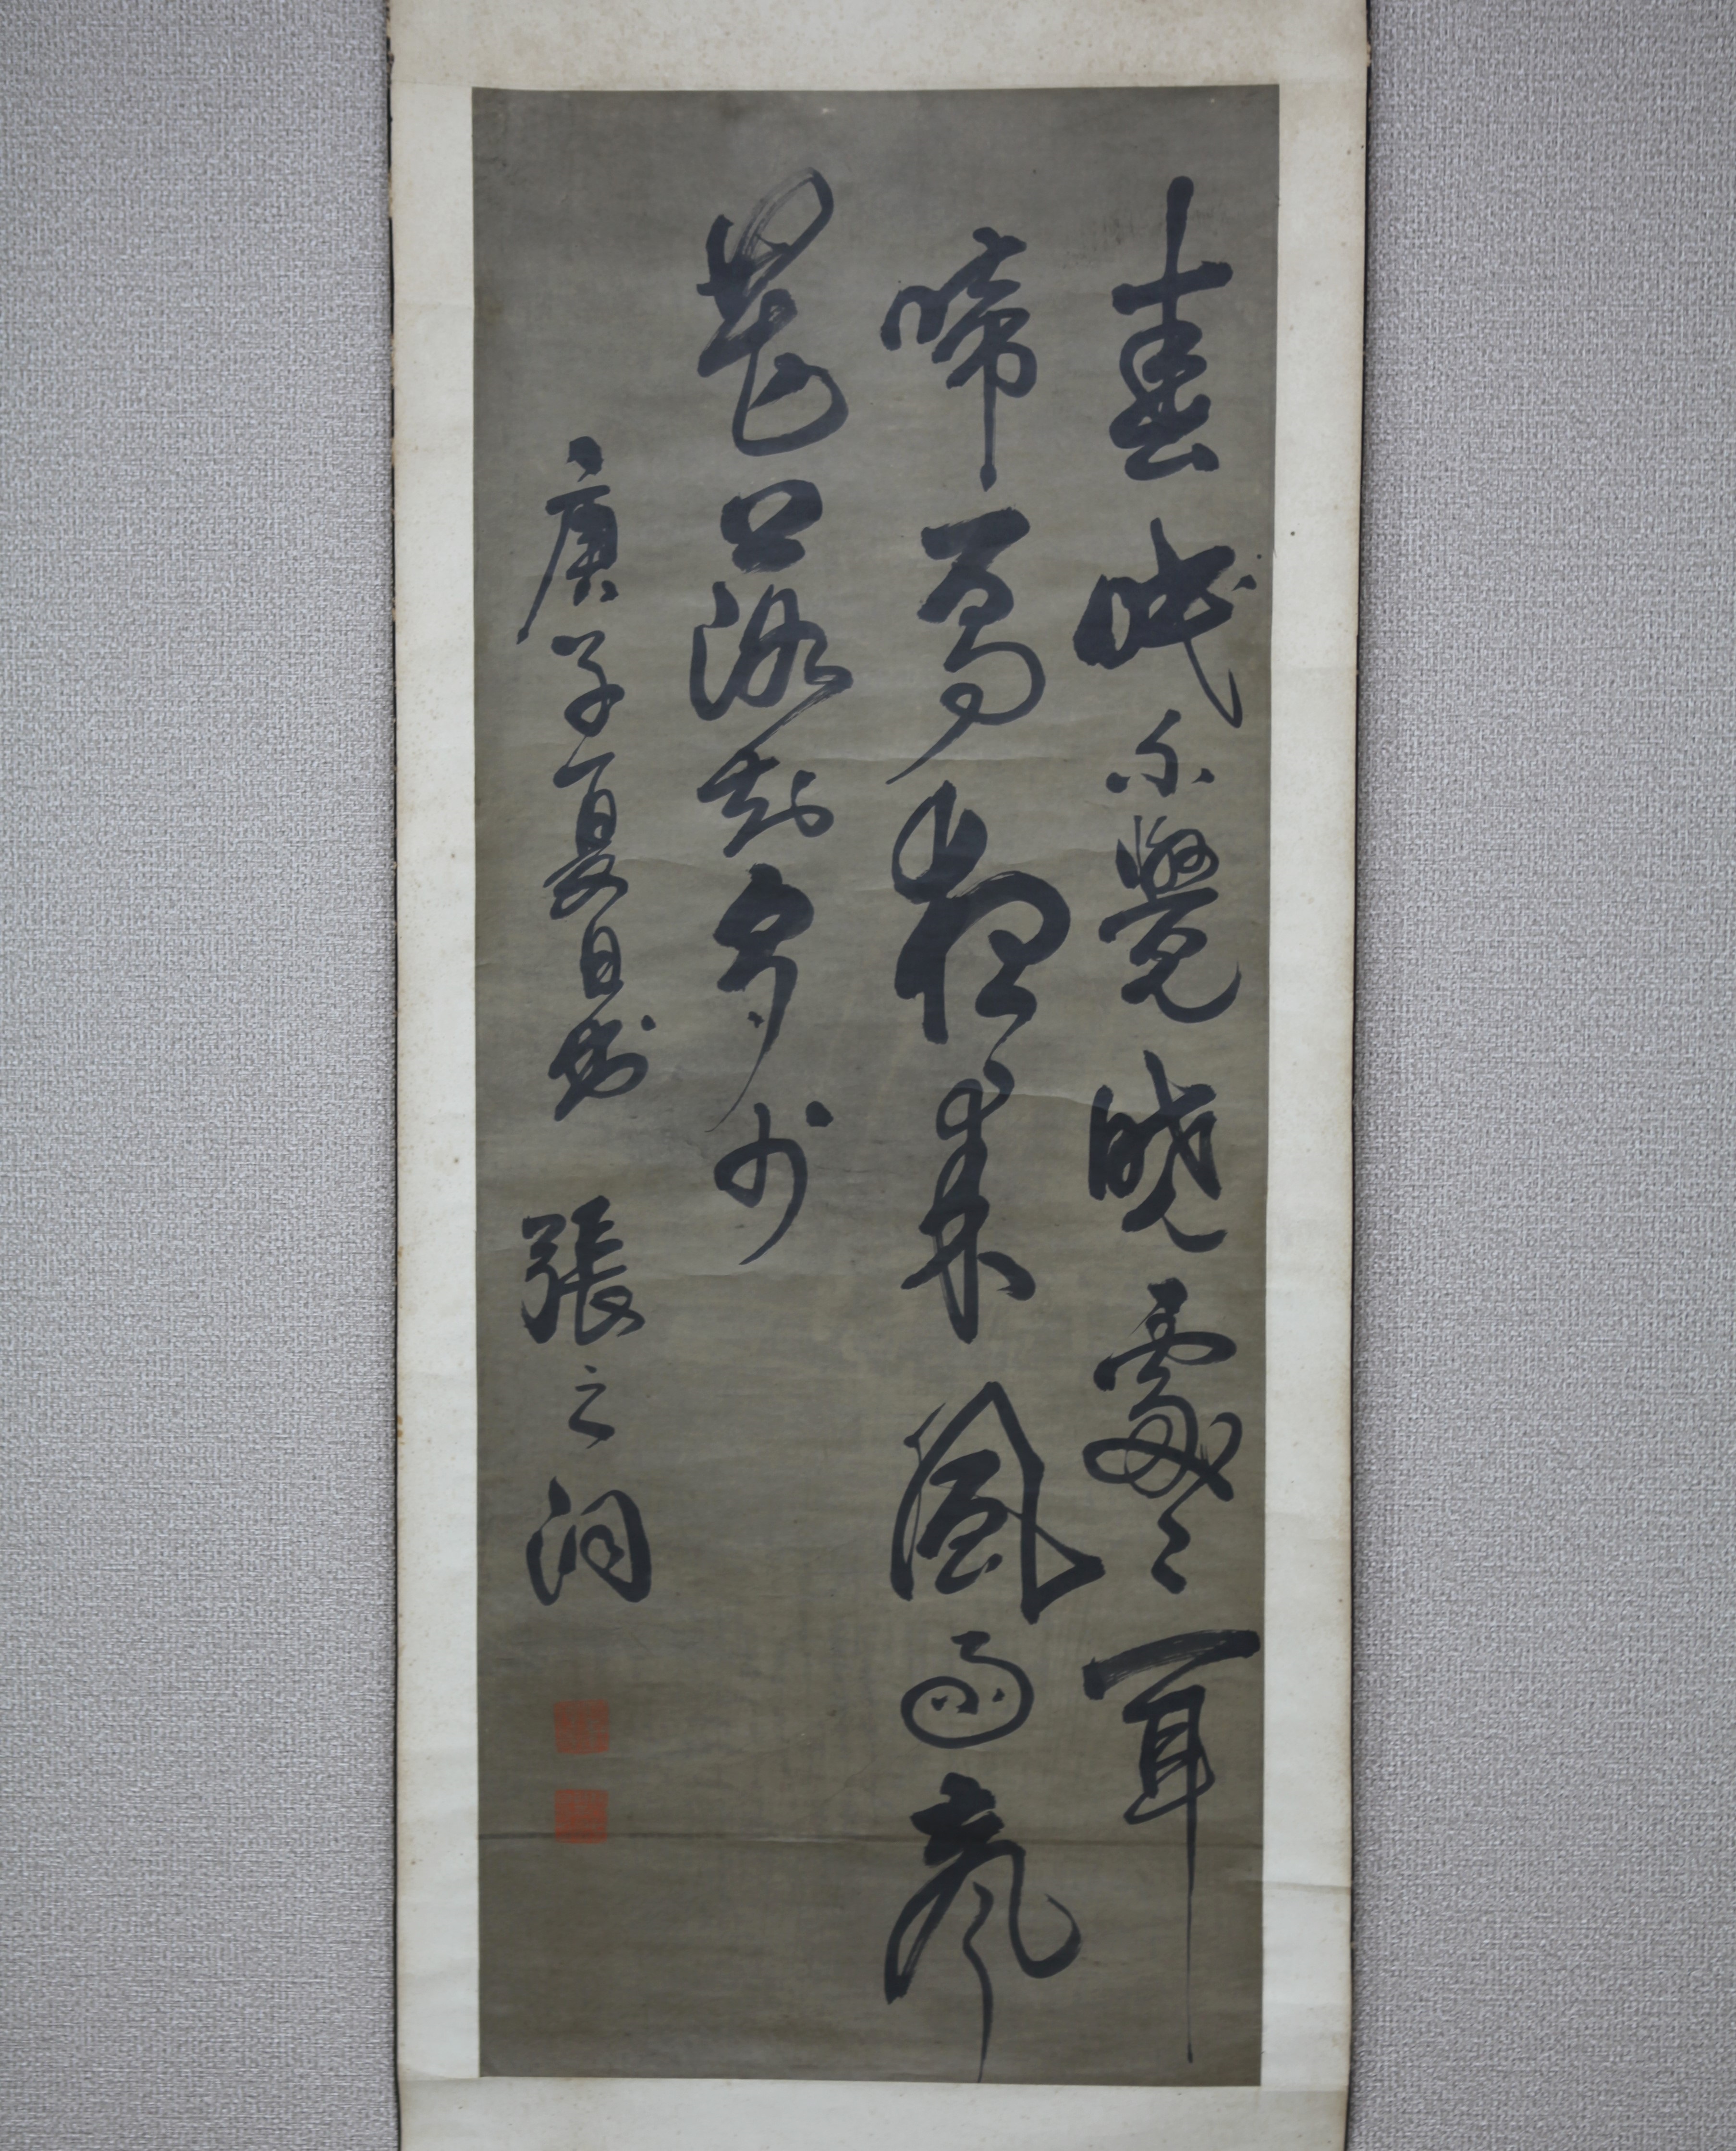 春眠不覺曉處々聞
啼鳥夜来風雨聲
花落知多少
庚子夏日書 張之洞